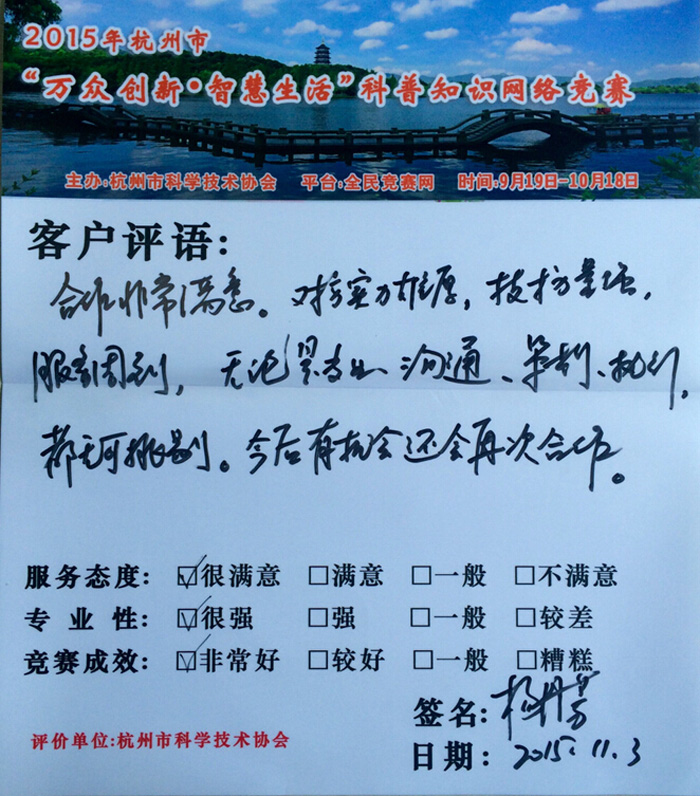 2015年杭州市
“万众创新·智慧生活”科普知识网络竞赛
主办:杭州市科学技术协会 平台:全民竞赛网 时间:9月19日-10月18日
客户评语:
合作非常满意。对方实力雄厚，技术力量强，
服务周到，无论是专业、沟通、策划、执行，
都无可挑剔。今后有机会还会再次合作。
服务态度: ☑很满意 □满意 □一般 □不满意
专业性: ☑很强 □强 □一般 □较差
竞赛成效: ☑非常好 □较好 □一般 □糟糕
签名:
评价单位:杭州市科学技术协会
日期: 2015.11.3